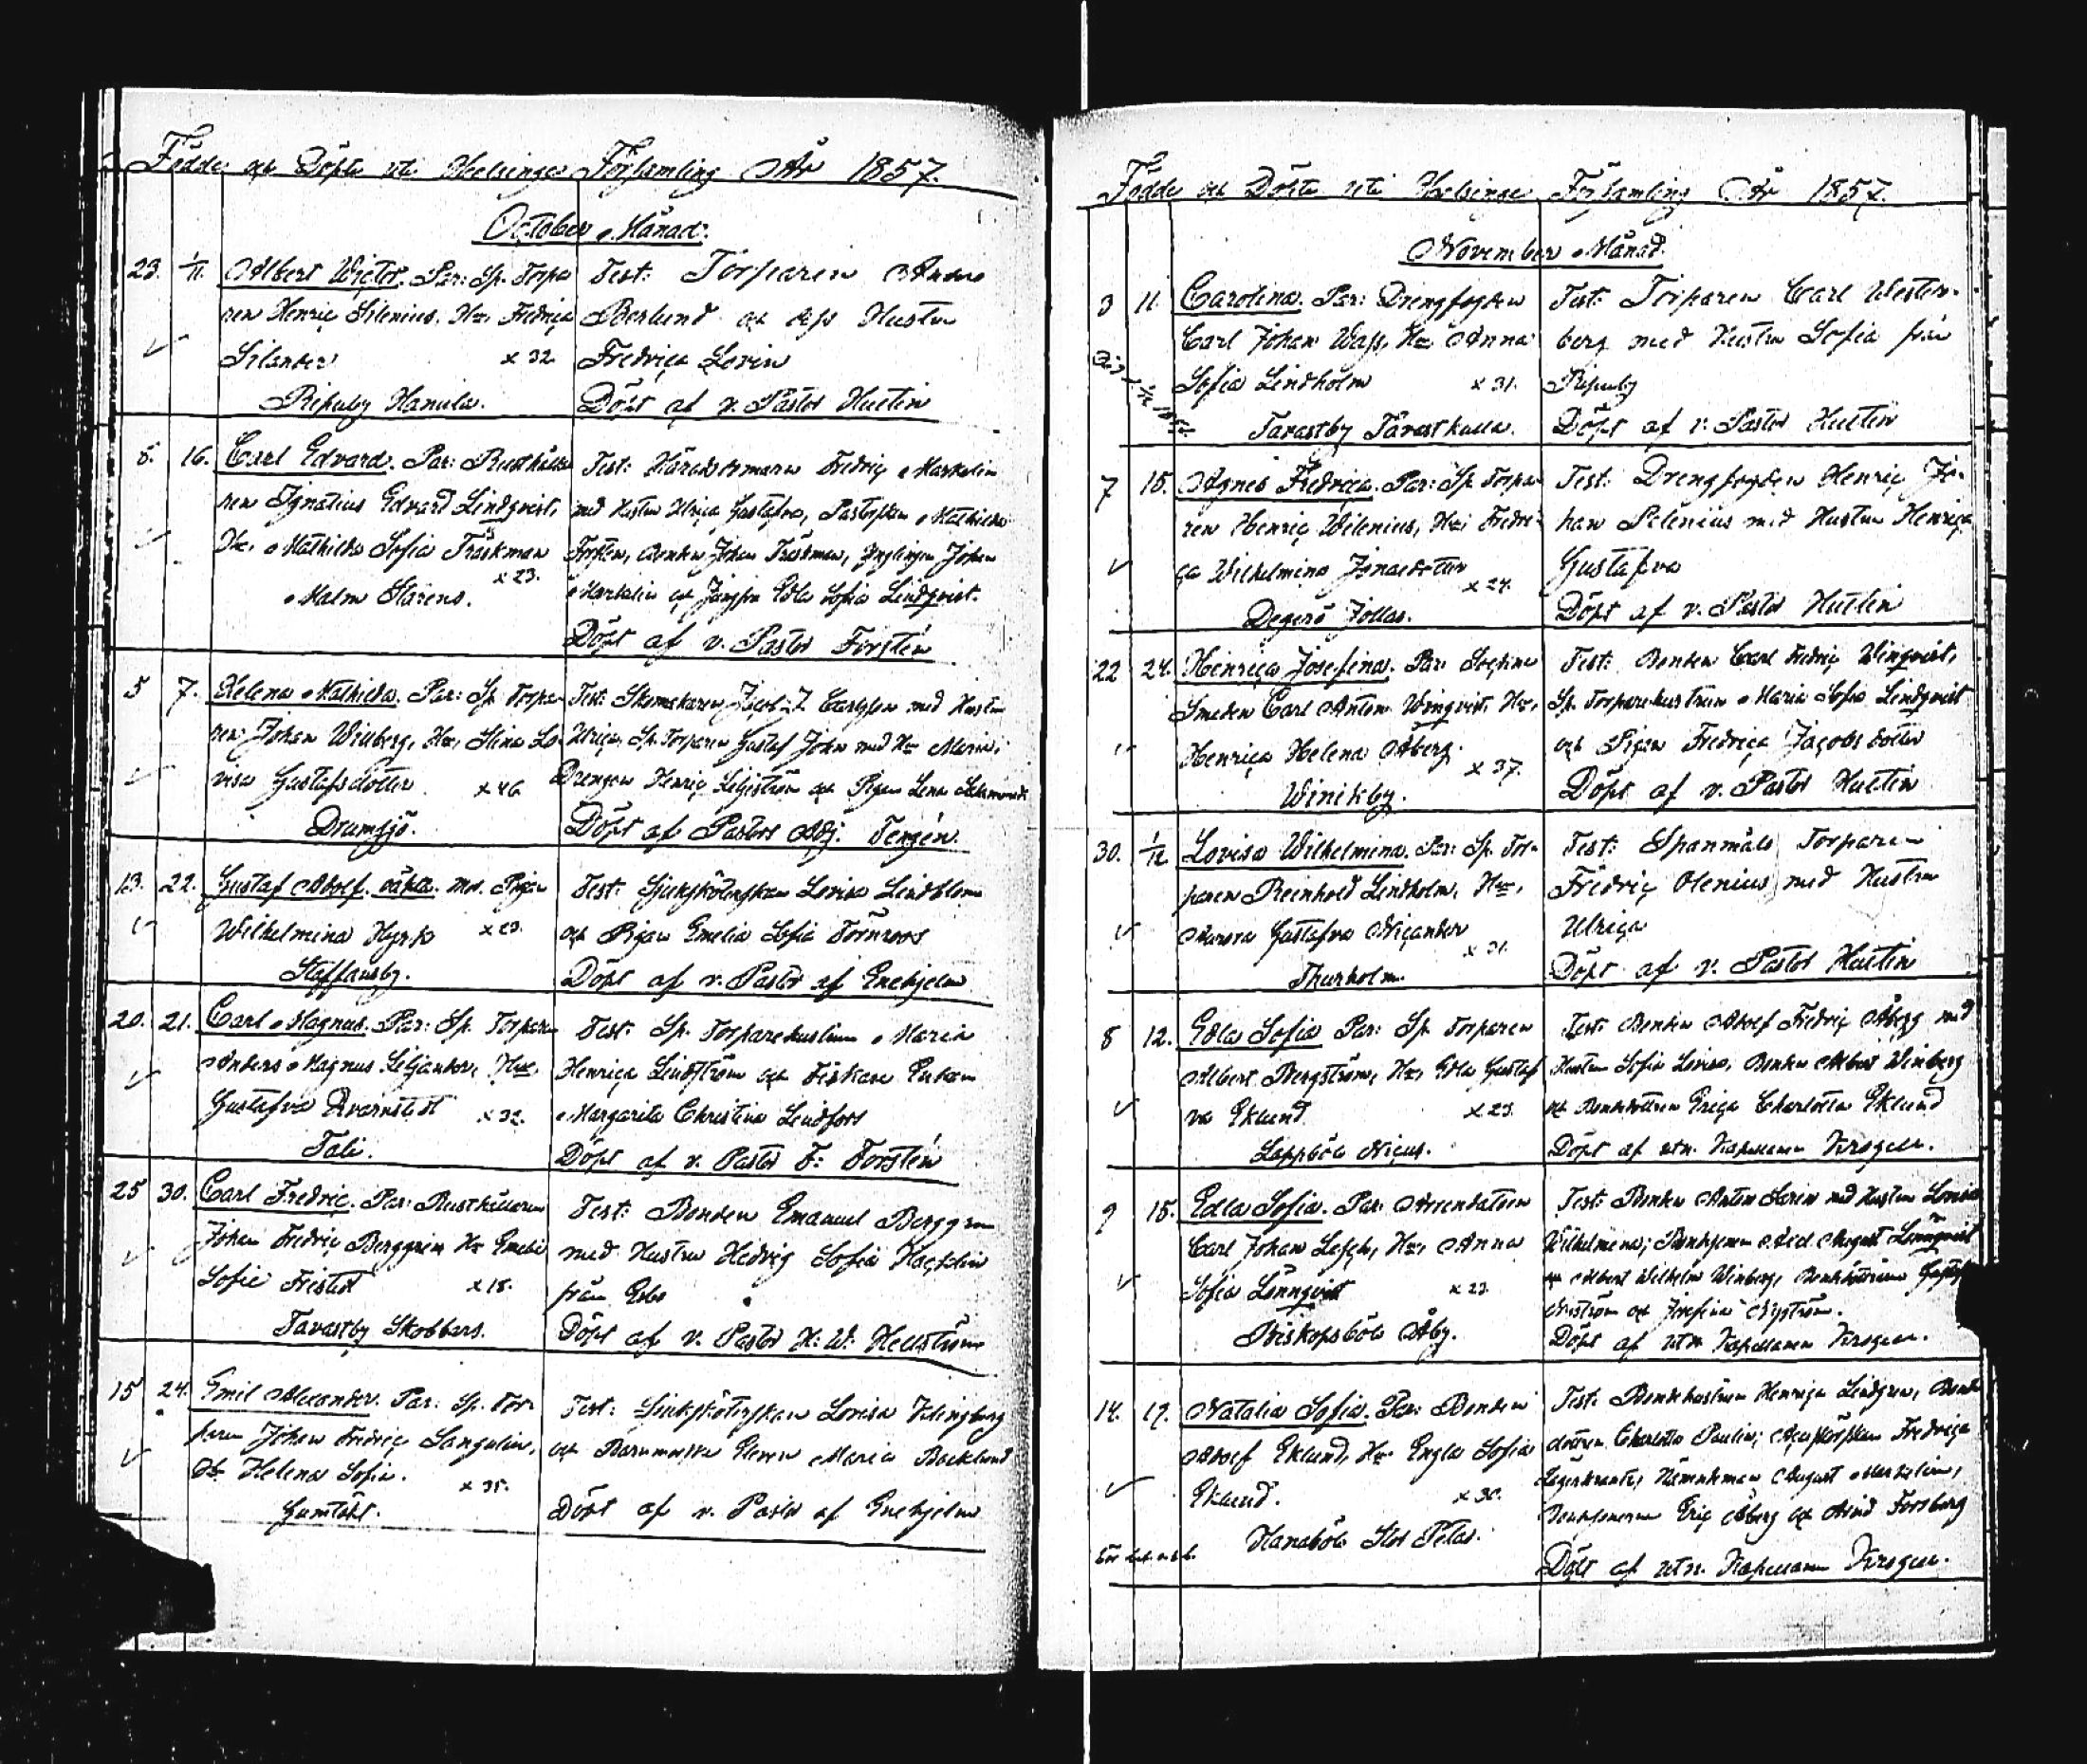 Födde och Döpte uti Helsinge Församling År 1857.
October Månad.
23. 1/11. Albert Victor. Par: Sp. Torpa
ren Henric Silenius, Hu, Fredrica
Silander x 32
Ripuby Hanula.
Test: Torparen Anders
Berlund och dess Hustru
Fredrica Lovin
Döpt af v. Pastor Hultin
8. 16. Carl Edvard. Par: Rusthålla
ren Ignatius Edvard Lindqvist,
Hu, Mathilda Sofia Träskman
x 23.
Malm Starens.
Test: Häradsdomaren Fredric Markelin
med Hustru Ulrica Gustafva, Mathilda
Forstén, Bonden Johan Träskman, Ynglingen Johan
Markelin och Jungfru Edla Sofia Lindqvist.
Döpt af v. Pastor Forstén
5 7. Helena Mathilda. Par: Sp. Torpa
ren Johan Winberg, Hu, Stina Lo
visa Gustafsdotter x 46
Drumsjö.
Test: Skomakaren Jacob Carlsson med Hustru
Ulrica, Sp. Torparen Gustaf John med Hu Maria;
Drengen Henric Liljeström och Pigan Lena
Döpt af Pastors Adj. Tengén.
13. 22. Gustaf Adolf. oäkta. Mod. Pigan
Wilhelmina Hyrk x 23.
Staffansby.
Test: Lovisa Lindblom
och Pigan Emelia Sofia Törnroos
Döpt af v. Pastor af Enehjelm
20. 21. Carl Magnus. Par: Sp. Torparen
Anders Magnus Liljander, Hu,
Gustafva Qvarnstedt x 32.
Tali.
Test: Sp. Torparehustrun Maria
Henrica Lindström och Fiskare Enkan
Margarita Christina Lindfors
Döpt af v. Pastor F: Forstén
25 30. Carl Fredric. Par: Rusthållaren
Johan Fredric Berggren Hu Emelie
Sofie Fristedt x 18.
Tavastby Skobbars.
Test: Bonden Emanuel Berggren
med Hustru Hedvig Sofia
från Esbo
Döpt af v. Pastor H: W: Hellström
15 24. Emil Alexander. Par: Sp. Tor
paren Johan Fredric Sangelin,
Hu Helena Sofia. x 35.
Gumtäkt.
Test: Lovisa Klingberg
och Barnmorske Eleven Maria Backlund
Döpt af v. Pastor af Enehjelm
Födde och Döpte uti Helsinge Församling År 1857.
November Månad.
3 11. Carolina. Par: Drengfogden
Carl Johan Wass, Hu Anna
Sofia Lindholm x 31.
Tavastby Tavastkulla.
Test: Torparen Carl Westen-
berg med Hustru Sofia från
Ripuby
Döpt af v. Pastor Hultin
7 15. Agnes Fredrica. Par: Sp. Torpa
ren Henric Wilenius, Hu: Fredri
ca Wilhelmina Jonaedotter
x 24.
Degerö Jollas.
Test: Drengfogden Henric Jo-
han Silenius med Hustru Henrica
Gustafva
Döpt af v. Pastor Hultin
22 24. Henrica Josefina. Par: Sockne
Smeden Carl Anton Winqvist, Hu,
Henrica Helena Åberg.
x 37.
Winikby.
Test: Bonden Carl Fredric Winqvist,
Sp. Torparehustrun Maria Sofia Lindqvist
och Pigan Fredrica Jacobsdotter
Döpt af v. Pastor Hultin
30. 1/12 Lovisa Wilhelmina. Par: Sp. Tor-
paren Reinhold Lindholm, Hu,
Aurora Gustafva Nicander
x 31.
Thurholm.
Test: Spanmåls Torparen
Fredric Olenius med Hustru
Ulrica
Döpt af v. Pastor Hultin
8 12. Edla Sofia Par: Sp. Torparen
Albert Bergström, Hu, Edla Gustaf
va Eklund. x 23.
Lappböle Nicus.
Test: Bonden Adolf Fredric Åberg med
Hustru Sofia Lovisa, Bonden Albert Winberg
och Bondedottren Erica Charlotta Eklund
Döpt af utn. Kapellanen Krogell.
9 15. Edla Sofia. Par: Arrendatorn
Carl Johan Hu, Anna
Sofia Lönnqvist x 23
Biskopsböle Åby.
Test: Bonden Anton med Hustru Lovisa
Wilhelmina; Bondesonen Axel August Lönnqvist
och Albert Wilhelm Winberg,
och Josefina Nyström.
Döpt af utn. Kapellanen Krogell.
14. 17. Natalia Sofia. Par: Bonden
Adolf Eklund, Hu Engla Sofia
Eklund. x 30.
Hanaböle Stor Pelas.
Test: Bondehustrun Henrica Lindgren, Bonde
dottren Charlotta Paulin; Fredrica
Lagerkrantz, Nämndeman August Markelin,
Bondsönerne Eric Åberg och Arvid Forsberg
Döpt af utn. Kapellanen Krogell.